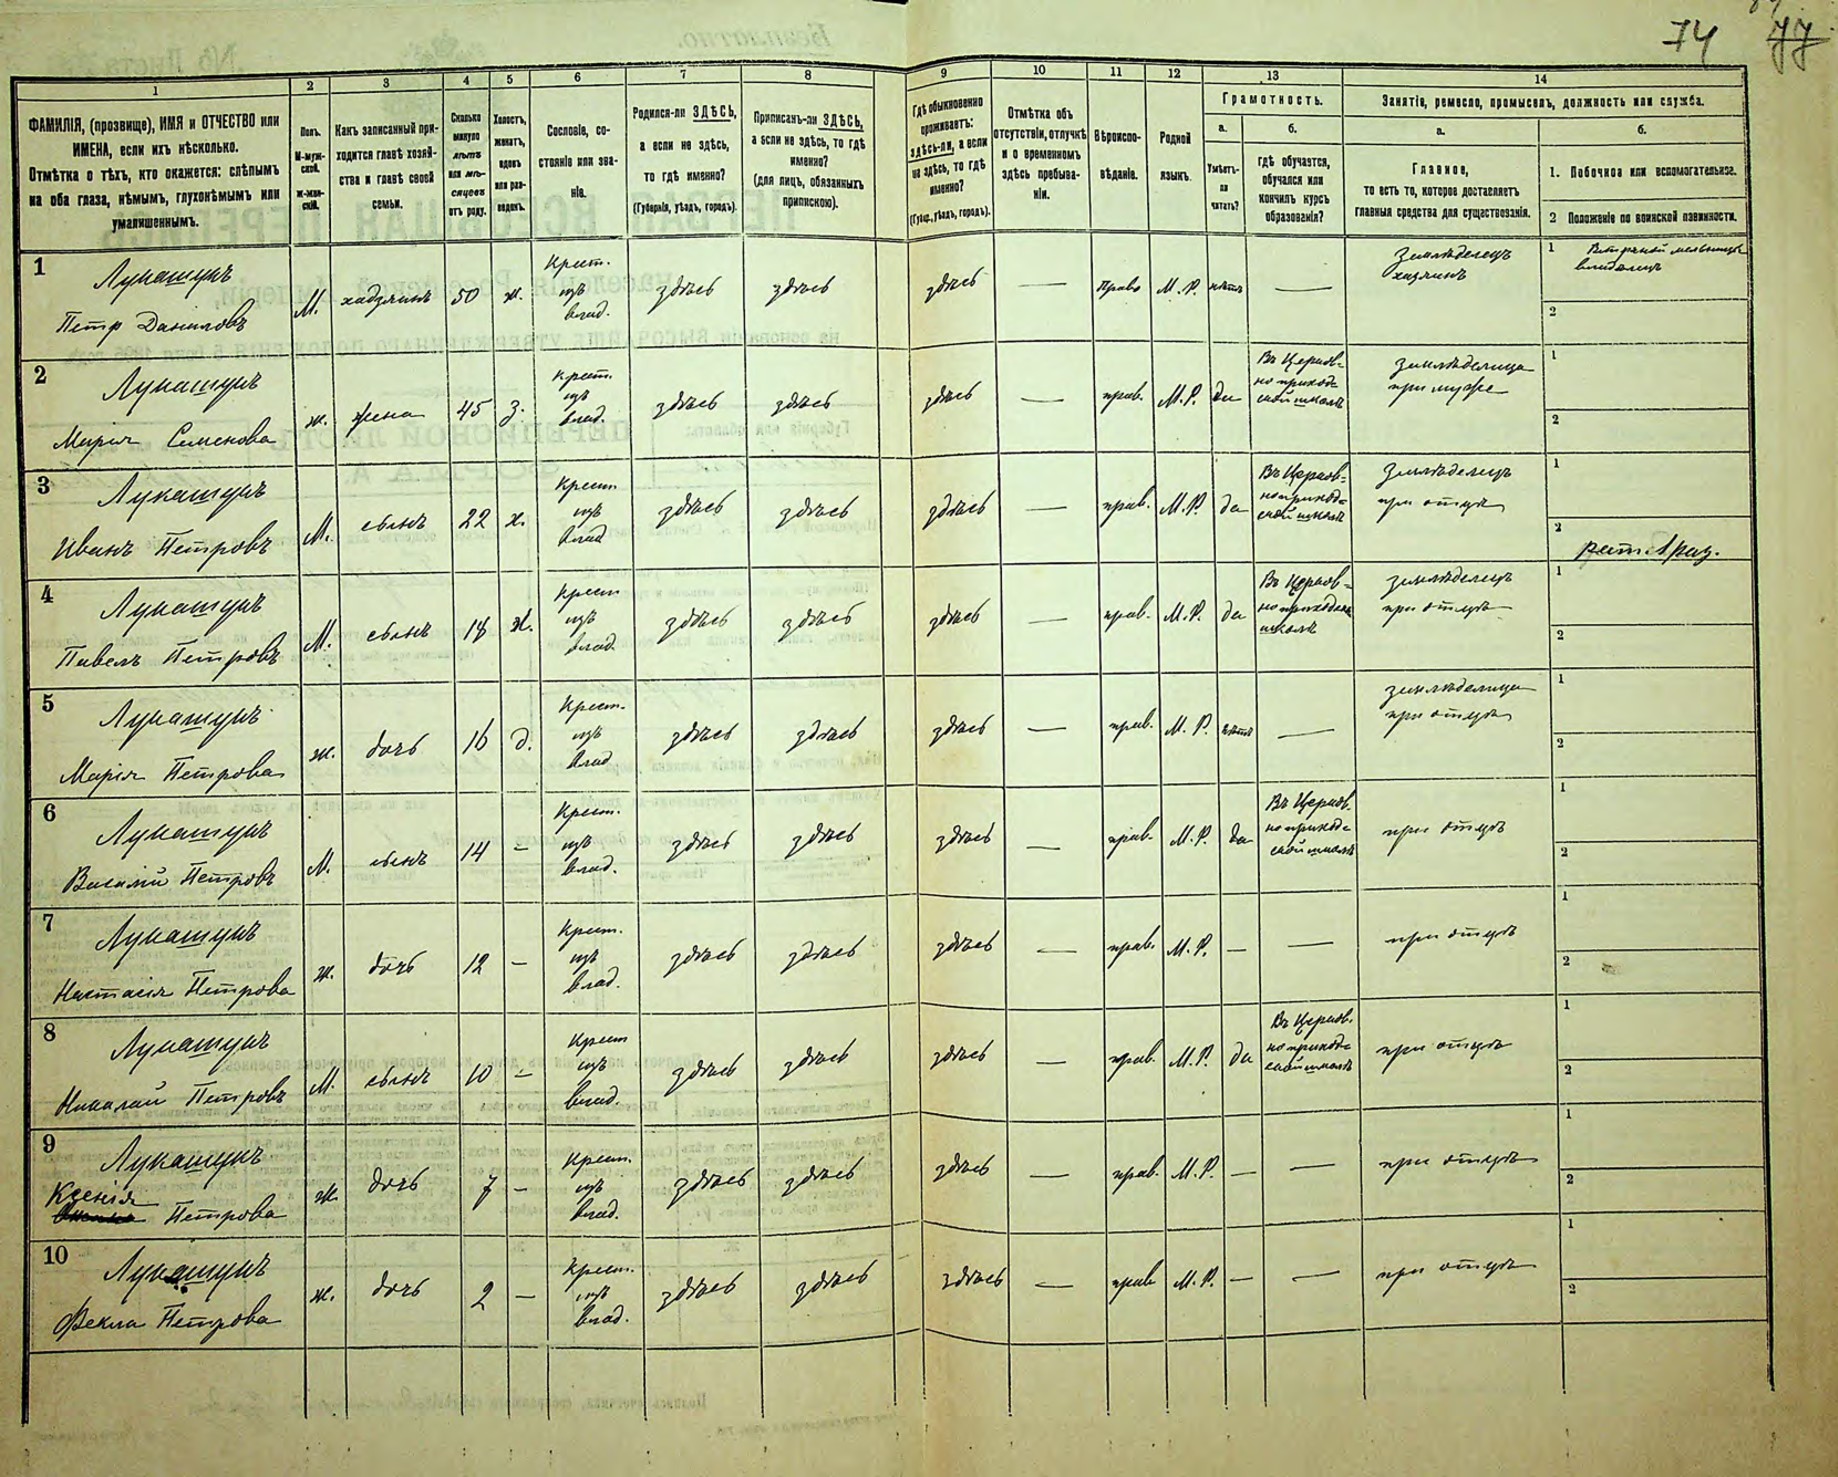 74 77
1
2
3
4
5
6
7
8
9
10
11
12
13
14
ФАМИЛІЯ, (прозвище), ИМЯ и ОТЧЕСТВО или
ИМЕНА, если ихъ нѣсколько.
Отмѣтка о тѣхъ, кто окажется: слѣпымъ
на оба глаза, нѣмымъ, глухонѣмымъ или
умалишеннымъ.
Полъ.
М-муж-
ской.
Ж-жен-
скій.
Какъ записанный при-
ходится главѣ хозяй-
ства и главѣ своей
семьи.
Сколько
минуло
лѣтъ
или мѣ-
сяцевъ
отъ роду.
Холостъ,
женатъ,
вдовъ
или раз-
веденъ.
Сословіе, со-
стояніе или зва-
ніе.
Родился-ли ЗДѢСЬ,
а если не здѣсь,
то гдѣ именно?
(Губернія, уѣздъ, городъ).
Приписанъ-ли ЗДѢСЬ,
а если не здѣсь, то гдѣ
именно?
(для лицъ, обязанныхъ
припискою).
Гдѣ обыкновенно
проживаетъ:
здѣсь-ли, а если
не здѣсь, то гдѣ
именно?
(Губер., уѣздъ, городъ).
Отмѣтка объ
отсутствіи, отлучкѣ
и о временномъ
здѣсь пребыва-
ніи.
Вѣроиспо-
вѣданіе.
Родной
языкъ.
Грамотность.
а.
Умѣетъ-
ли
читать?
б.
гдѣ обучается,
обучался или
кончилъ курсъ
образованія?
Занятіе, ремесло, промыселъ, должность или служба.
а.
Главное,
то есть то, которое доставляетъ
главныя средства для существованія.
б.
1. Побочное или вспомогательное.
2 Положеніе по воинской повинности.
1
Лукашукъ
Петр Даниловъ
М. хадзяинъ 50 ж.
Крест.
изъ
влад.
здѣсь здѣсь здѣсь — Прав М. Р. нѣтъ —
Земледелецъ
хазяинъ
1
владелецъ
2
2
Лукашукъ
Марія Семенова
ж. жена 45 з.
Крест.
изъ
влад.
здѣсь здѣсь здѣсь — прав. М. Р. да
Въ Церков-
но приход-
ской школѣ
земледелица
при муже
1
2
3
Лукашукъ
Иванъ Петровъ
М. сынъ 22 х.
Крест
изъ
влад
здѣсь здѣсь здѣсь — прав. М. Р. да
Въ Церков-
но приход-
ской школѣ
Земледелецъ
при отцѣ
1
2
рат. 1 раз.
4
Лукашукъ
Павелъ Петровъ
М. сынъ 18 х.
Крест
изъ
влад.
здѣсь здѣсь здѣсь — прав. М. Р. да
Въ Церков-
но приходск
школѣ
земледелецъ
при отцѣ
1
2
5
Лукашукъ
Марія Петрова
ж. дочь 16 д.
Крест.
изъ
влад
здѣсь здѣсь здѣсь — прав. М. Р. нѣтъ —
земледелица
при отцѣ
1
2
6
Лукашукъ
Василій Петровъ
М. сынъ 14 —
Крест.
изъ
влад.
здѣсь здѣсь здѣсь — прав. М. Р. да
Въ Церков.
но приход-
ской школѣ
при отцѣ
1
2
7
Лукашукъ
Настасія Петрова
ж. дочь 12 —
Крест.
изъ
влад.
здѣсь здѣсь здѣсь — прав. М. Р. — —
при отцѣ
1
2
8
Лукашукъ
Николай Петровъ
М. сынъ 10 —
Крест
изъ
влад.
здѣсь здѣсь здѣсь — прав. М. Р. да
Въ Церков.
но приход-
ской школѣ
при отцѣ
1
2
9
Лукашукъ
Ксенія
Петрова
ж. дочь 7 —
Крест.
изъ
влад.
здѣсь здѣсь здѣсь — прав. М. Р. — —
при отцѣ
1
2
10
Лукашукъ
Фекла Петрова
ж. дочь 2 —
Крест.
изъ
влад.
здѣсь здѣсь здѣсь — прав М. Р. — —
при отцѣ
1
2